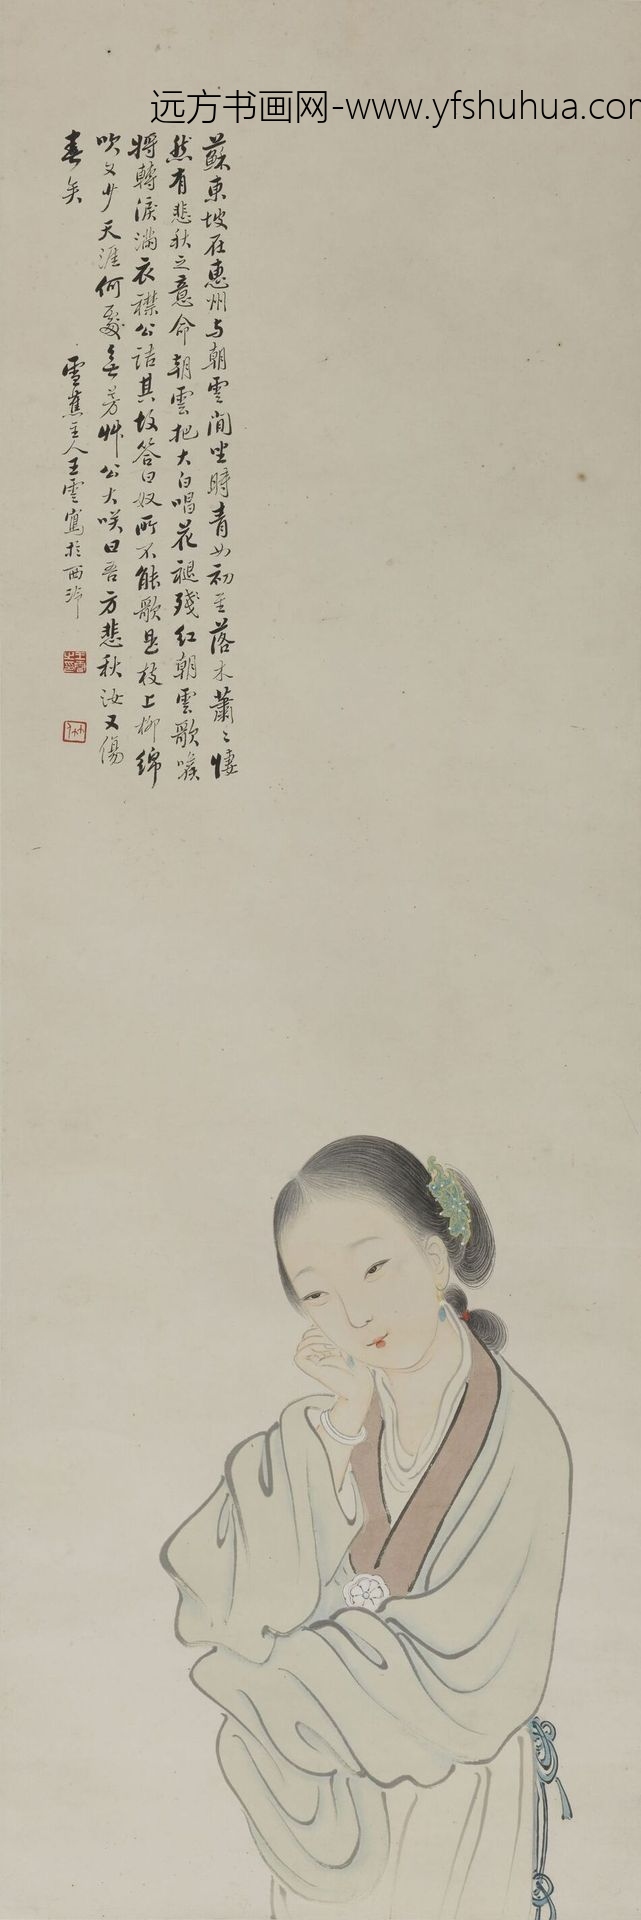 远方书画网-www.yfshuhua.com
蘇東坡在惠州与朝雲閒坐時青女初至落木蕭〻悽
然有悲秋之意命朝雲把大白唱花褪殘紅朝雲歌喉
將轉淚滿衣襟公詰其故答曰奴所不能歌是枝上柳綿
吹又少天涯何處無芳艸公大咲曰吾方悲秋汝又傷
春矣
雪蕉主人王雲寫於西泠